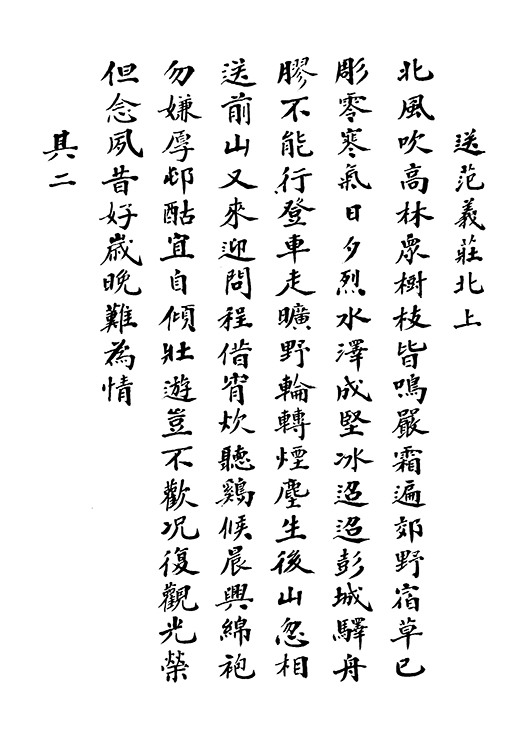 送范義莊北上
北風吹高林眾樹枝皆鳴嚴霜遍郊野宿草已
彫零寒氣日夕烈水澤成堅冰迢迢彭城驛舟
膠不能行登車走曠野輪轉煙塵生後山忽相
送前山又來迎問程借宵炊聽鷄候晨興綿袍
勿嫌厚邨酤宜自傾壯遊豈不歡況復觀光榮
但念夙昔好歲晚難為情
其二